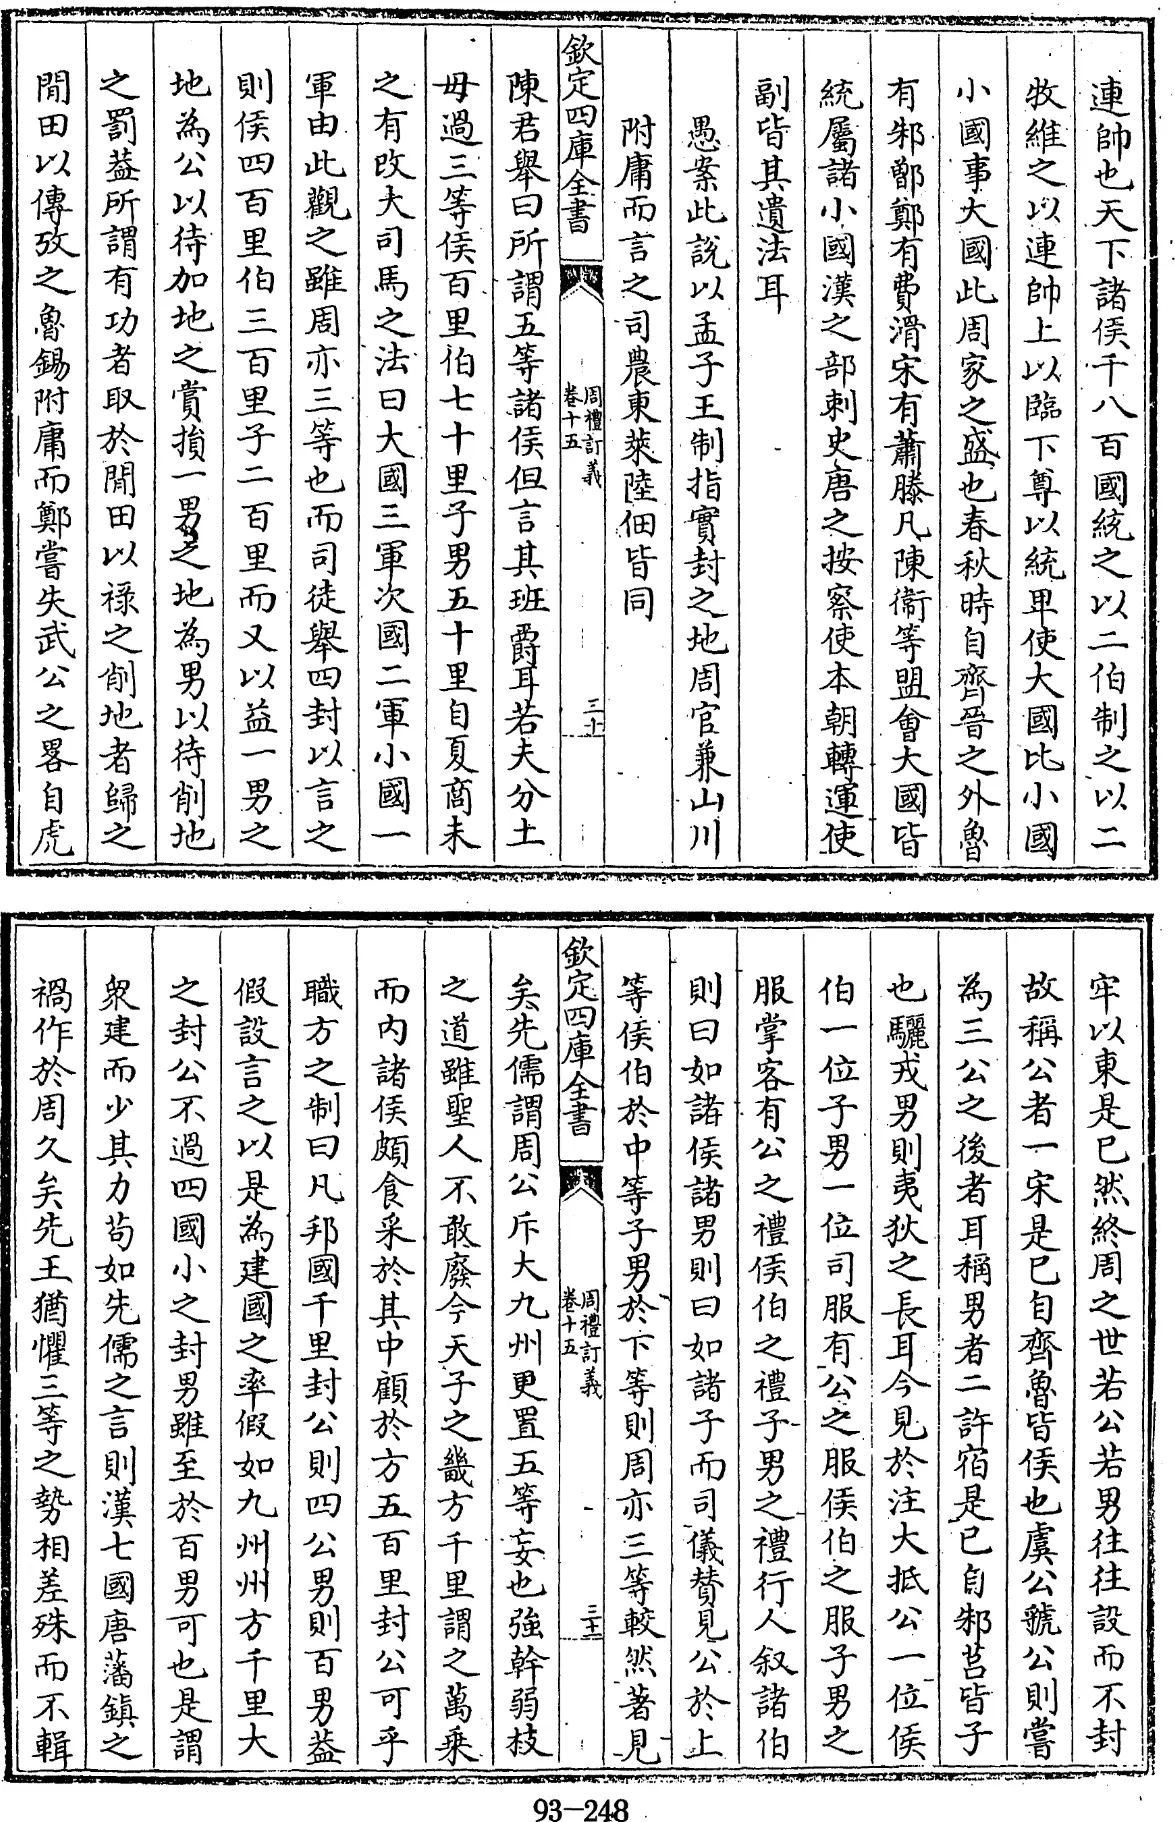 連帥也天下諸侯千八百國統之以二伯制之以二
牧維之以連帥上以臨下尊以統卑使大國比小國
小國事大國此周家之盛也春秋時自齊晉之外魯
有邾鄫鄭有費滑宋有蕭滕凡陳衞等盟會大國皆
統屬諸小國漢之部刺史唐之按察使本朝轉運使
副皆其遺法耳
愚案此說以孟子王制指實封之地周官兼山川
附庸而言之司農東萊陸佃皆同
欽定四庫全書
周禮訂義
卷十五
三十
陳君舉曰所謂五等諸侯但言其班爵耳若夫分土
毋過三等侯百里伯七十里子男五十里自夏商未
之有改大司馬之法曰大國三軍次國二軍小國一
軍由此觀之雖周亦三等也而司徒舉四封以言之
則侯四百里伯三百里子二百里而又以益一男之
地為公以待加地之賞損一男之地為男以待削地
之罰葢所謂有功者取於閒田以祿之削地者歸之
閒田以傳攷之魯錫附庸而鄭嘗失武公之畧自虎
牢以東是已然終周之世若公若男往往設而不封
故稱公者一宋是已自齊魯皆侯也虞公虢公則嘗
為三公之後者耳稱男者二許宿是已自邾莒皆子
也驪戎男則夷狄之長耳今見於注大抵公一位侯
伯一位子男一位司服有公之服侯伯之服子男之
服掌客有公之禮侯伯之禮子男之禮行人叙諸伯
則曰如諸侯諸男則曰如諸子而司儀賛見公於上
等侯伯於中等子男於下等則周亦三等較然著見
欽定四庫全書
周禮訂義
卷十五
三十一
矣先儒謂周公斥大九州更置五等妄也強幹弱枝
之道雖聖人不敢廢今天子之畿方千里謂之萬乗
而内諸侯頗食采於其中顧於方五百里封公可乎
職方之制曰凡邦國千里封公則四公男則百男葢
假設言之以是為建國之率假如九州州方千里大
之封公不過四國小之封男雖至於百男可也是謂
衆建而少其力茍如先儒之言則漢七國唐藩鎮之
禍作於周久矣先王猶懼三等之勢相差殊而不輯
93-248